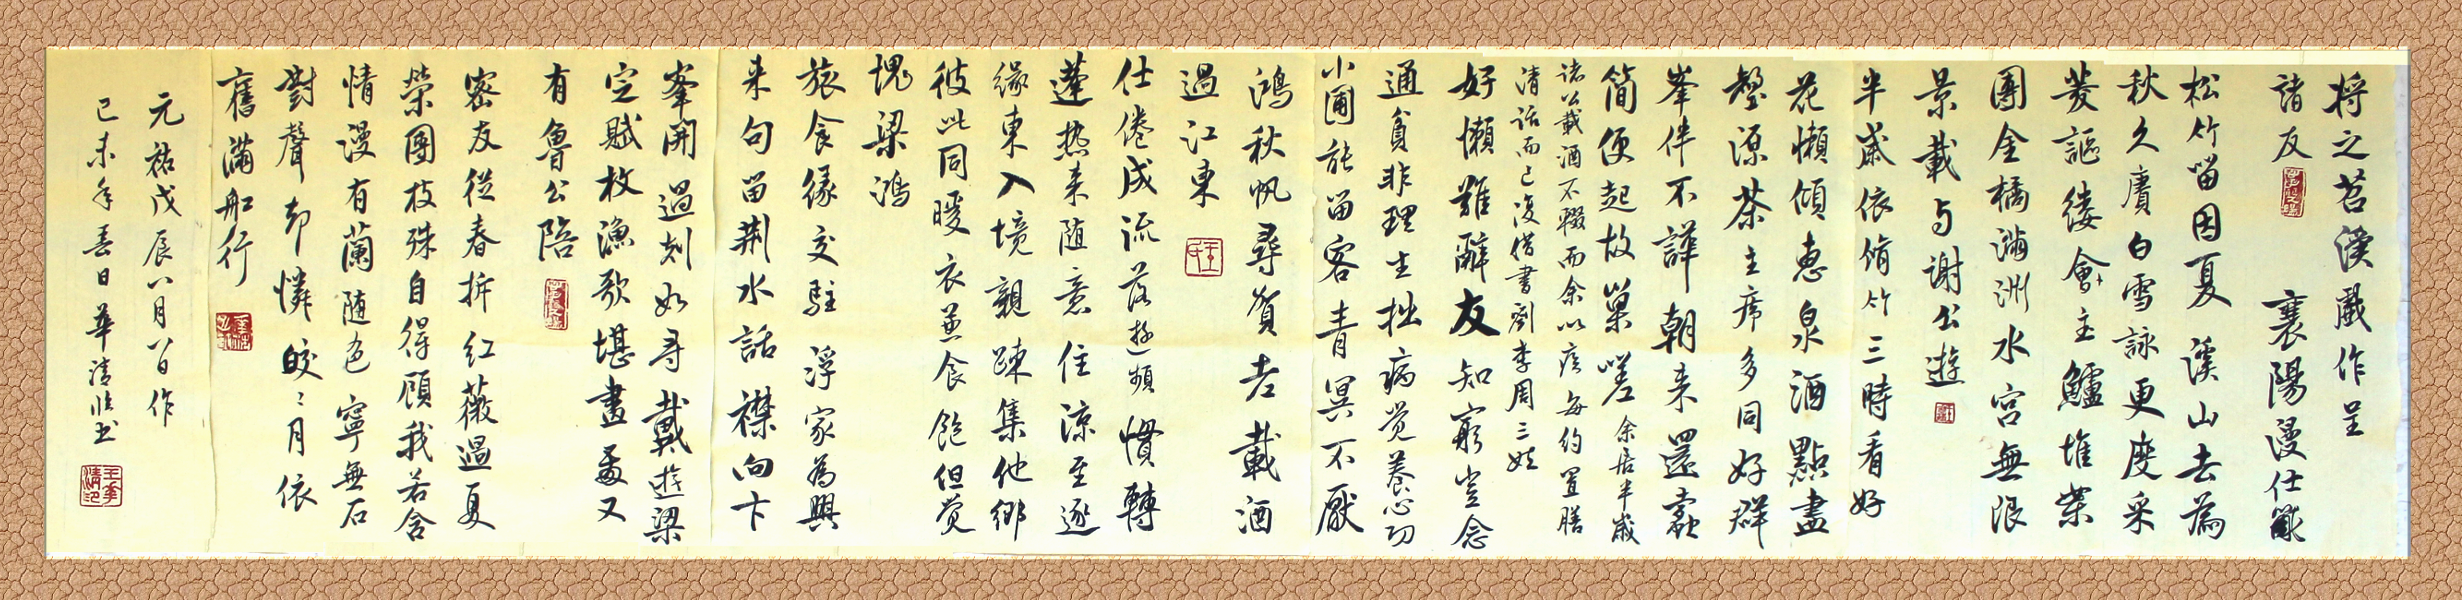 将之苕溪戲作呈
諸友 襄陽漫仕黻
松竹留因夏溪山去為
秋久賡白雪詠更度采
菱謳縷會主鱸堆案
團金橘滿洲水宮無限
景載与謝公遊
半歲依脩竹三時看好
花懶傾惠泉酒點盡
壑源茶主席多同好群
峯伴不譁朝来還蠹
簡便起故巢嗟 余居半歲
诸公載酒不輟而余以疾每約置膳
清話而已復借書劉李周三姓
好懶難辭友知窮豈念
通貧非理生拙病觉養心功
小圃能留客青冥不厭
鴻秋帆尋賀老載酒
過江東
仕倦成流落遊頻慣轉
蓬热来随意住涼至逐
緣東入境親踈集他鄉
彼此同暖衣兼食飽但觉
愧梁鴻
旅食緣交駐浮家為興
来句留荆水話襟向卞
峯開過剡如尋戴遊梁
定賦枚漁歌堪畫處又
有魯公陪
密友從春拆紅薇過夏
榮團枝殊自得顧我若含
情漫有蘭随色寧無石
對聲却憐皎〻月依
舊滿船行
元祐戊辰八月八日作
己未年春日華清临书
王華清印